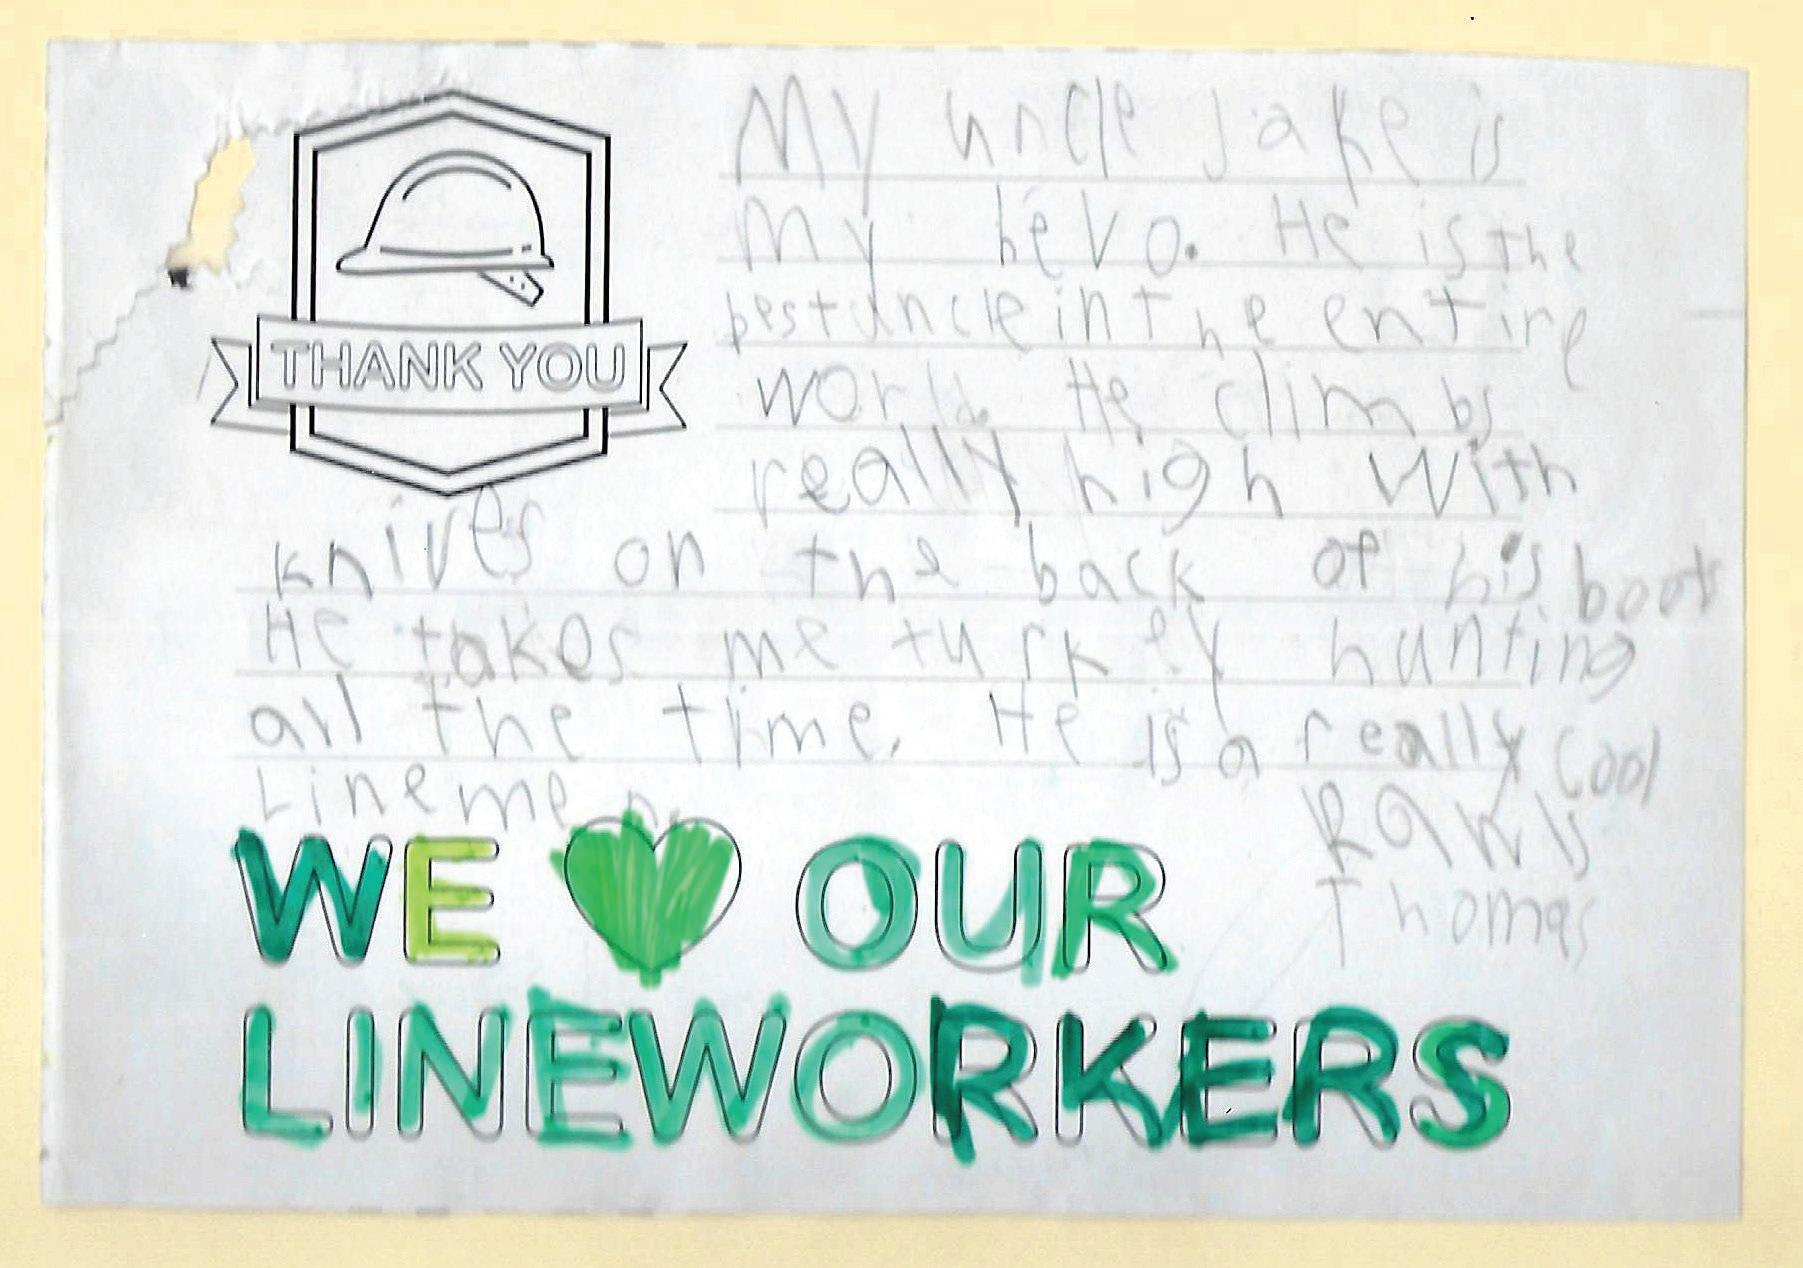 THANK YOU
My uncle Jake is
my hero. He is the
best uncle in the entire
world. He climbs
really high with
knives on the back of his boots
He takes me turkey hunting
all the time. He is a really cool
Linemen.
Rawls
Thomas
WE OUR
LINEWORKERS